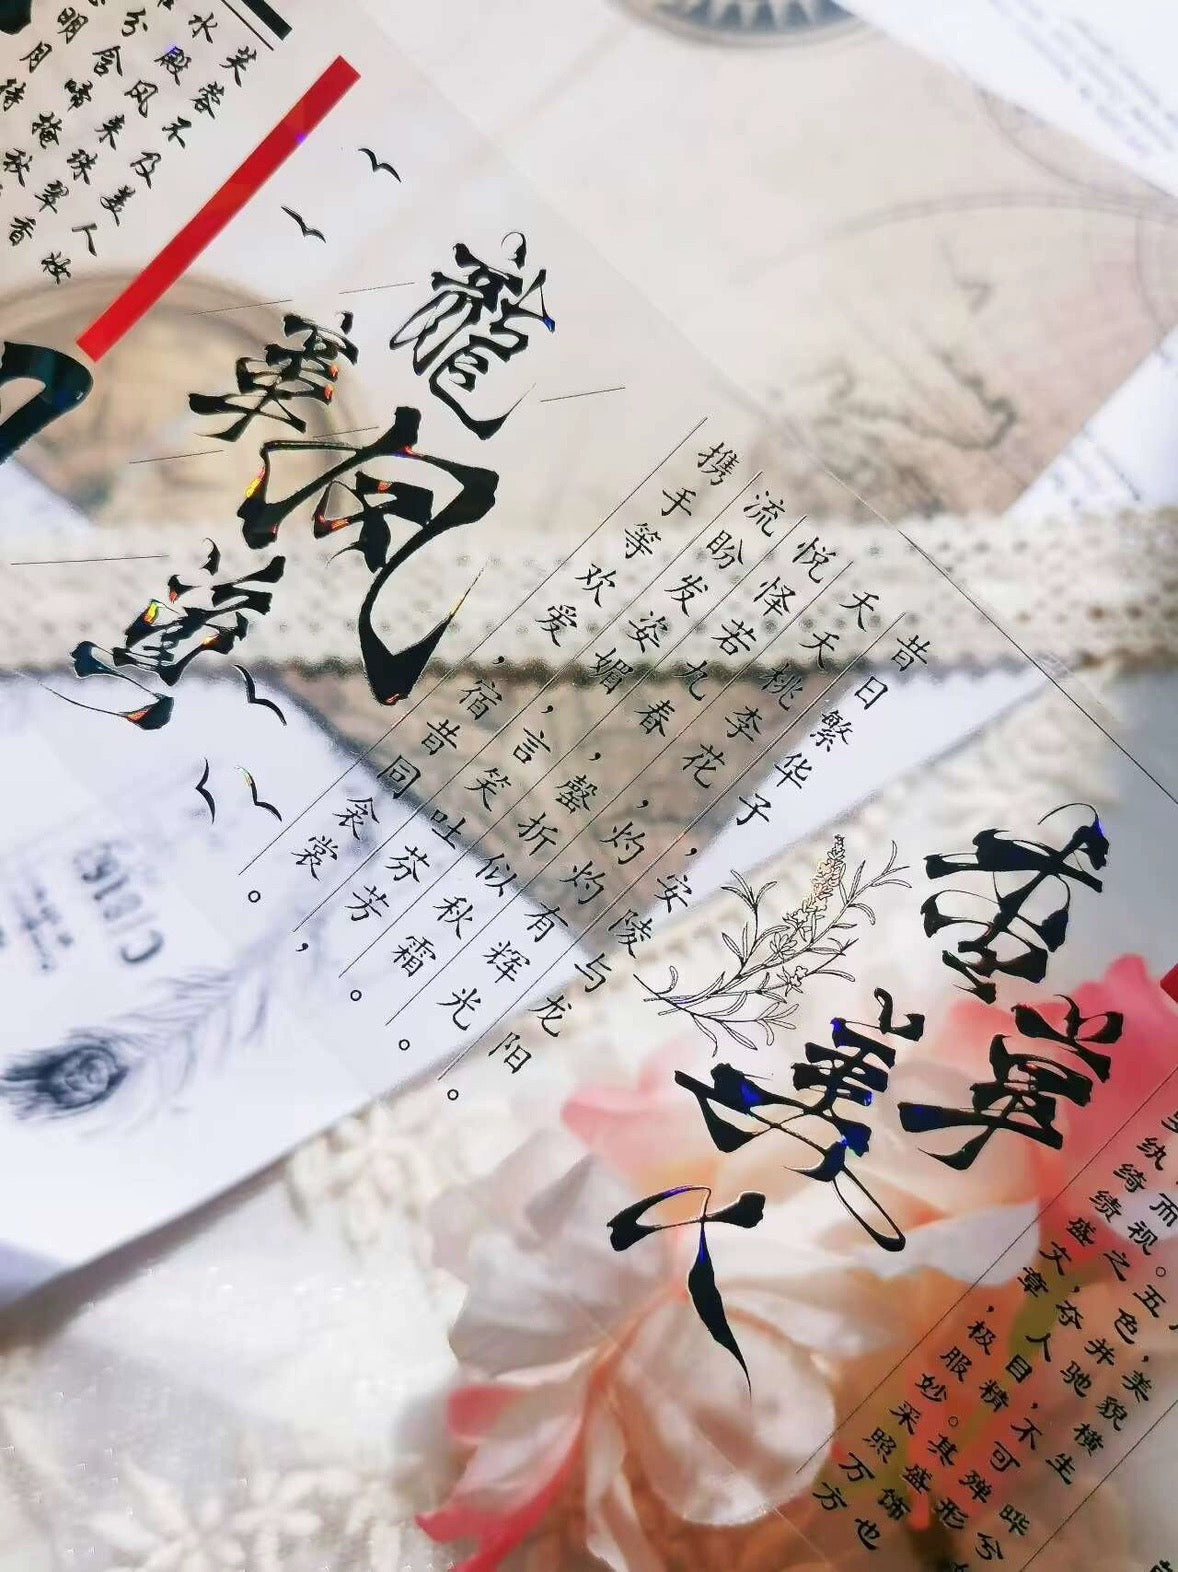 芙蓉不及美人妆
水殿风来珠翠香
分含啼掩秋
明月待
龍章风
昔日繁华子，安陵与龙阳。
夭夭桃李花，灼灼有辉光。
悦怿若九春，罄折似秋霜。
流盼发姿媚，言笑吐芬芳。
携手等欢爱，宿昔同衾裳。
香草美人
美貌横生晔兮
五色并驰，不可殚形
而视之，夺人目精。其盛饰也
纨绮绩盛文章，极服妙采照万方